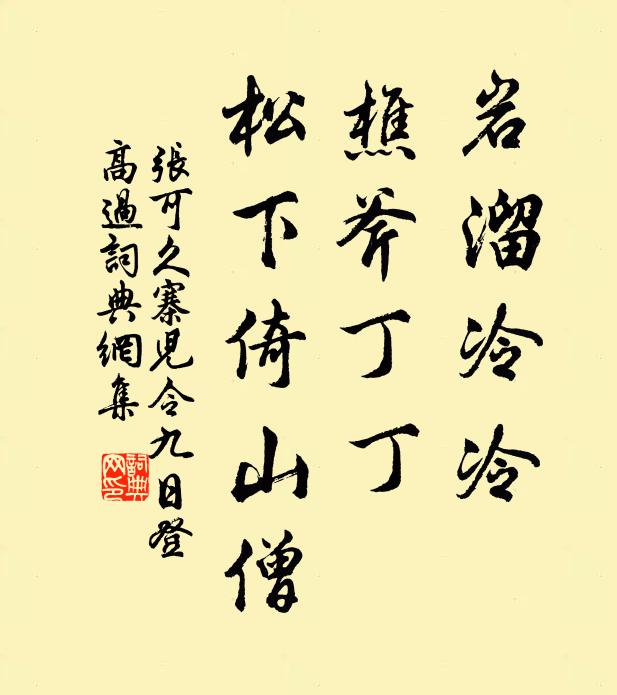 岩溜冷冷
樵斧丁丁
松下倚山僧
張可久寨児令九日登
高過詞典網集
詞典网印